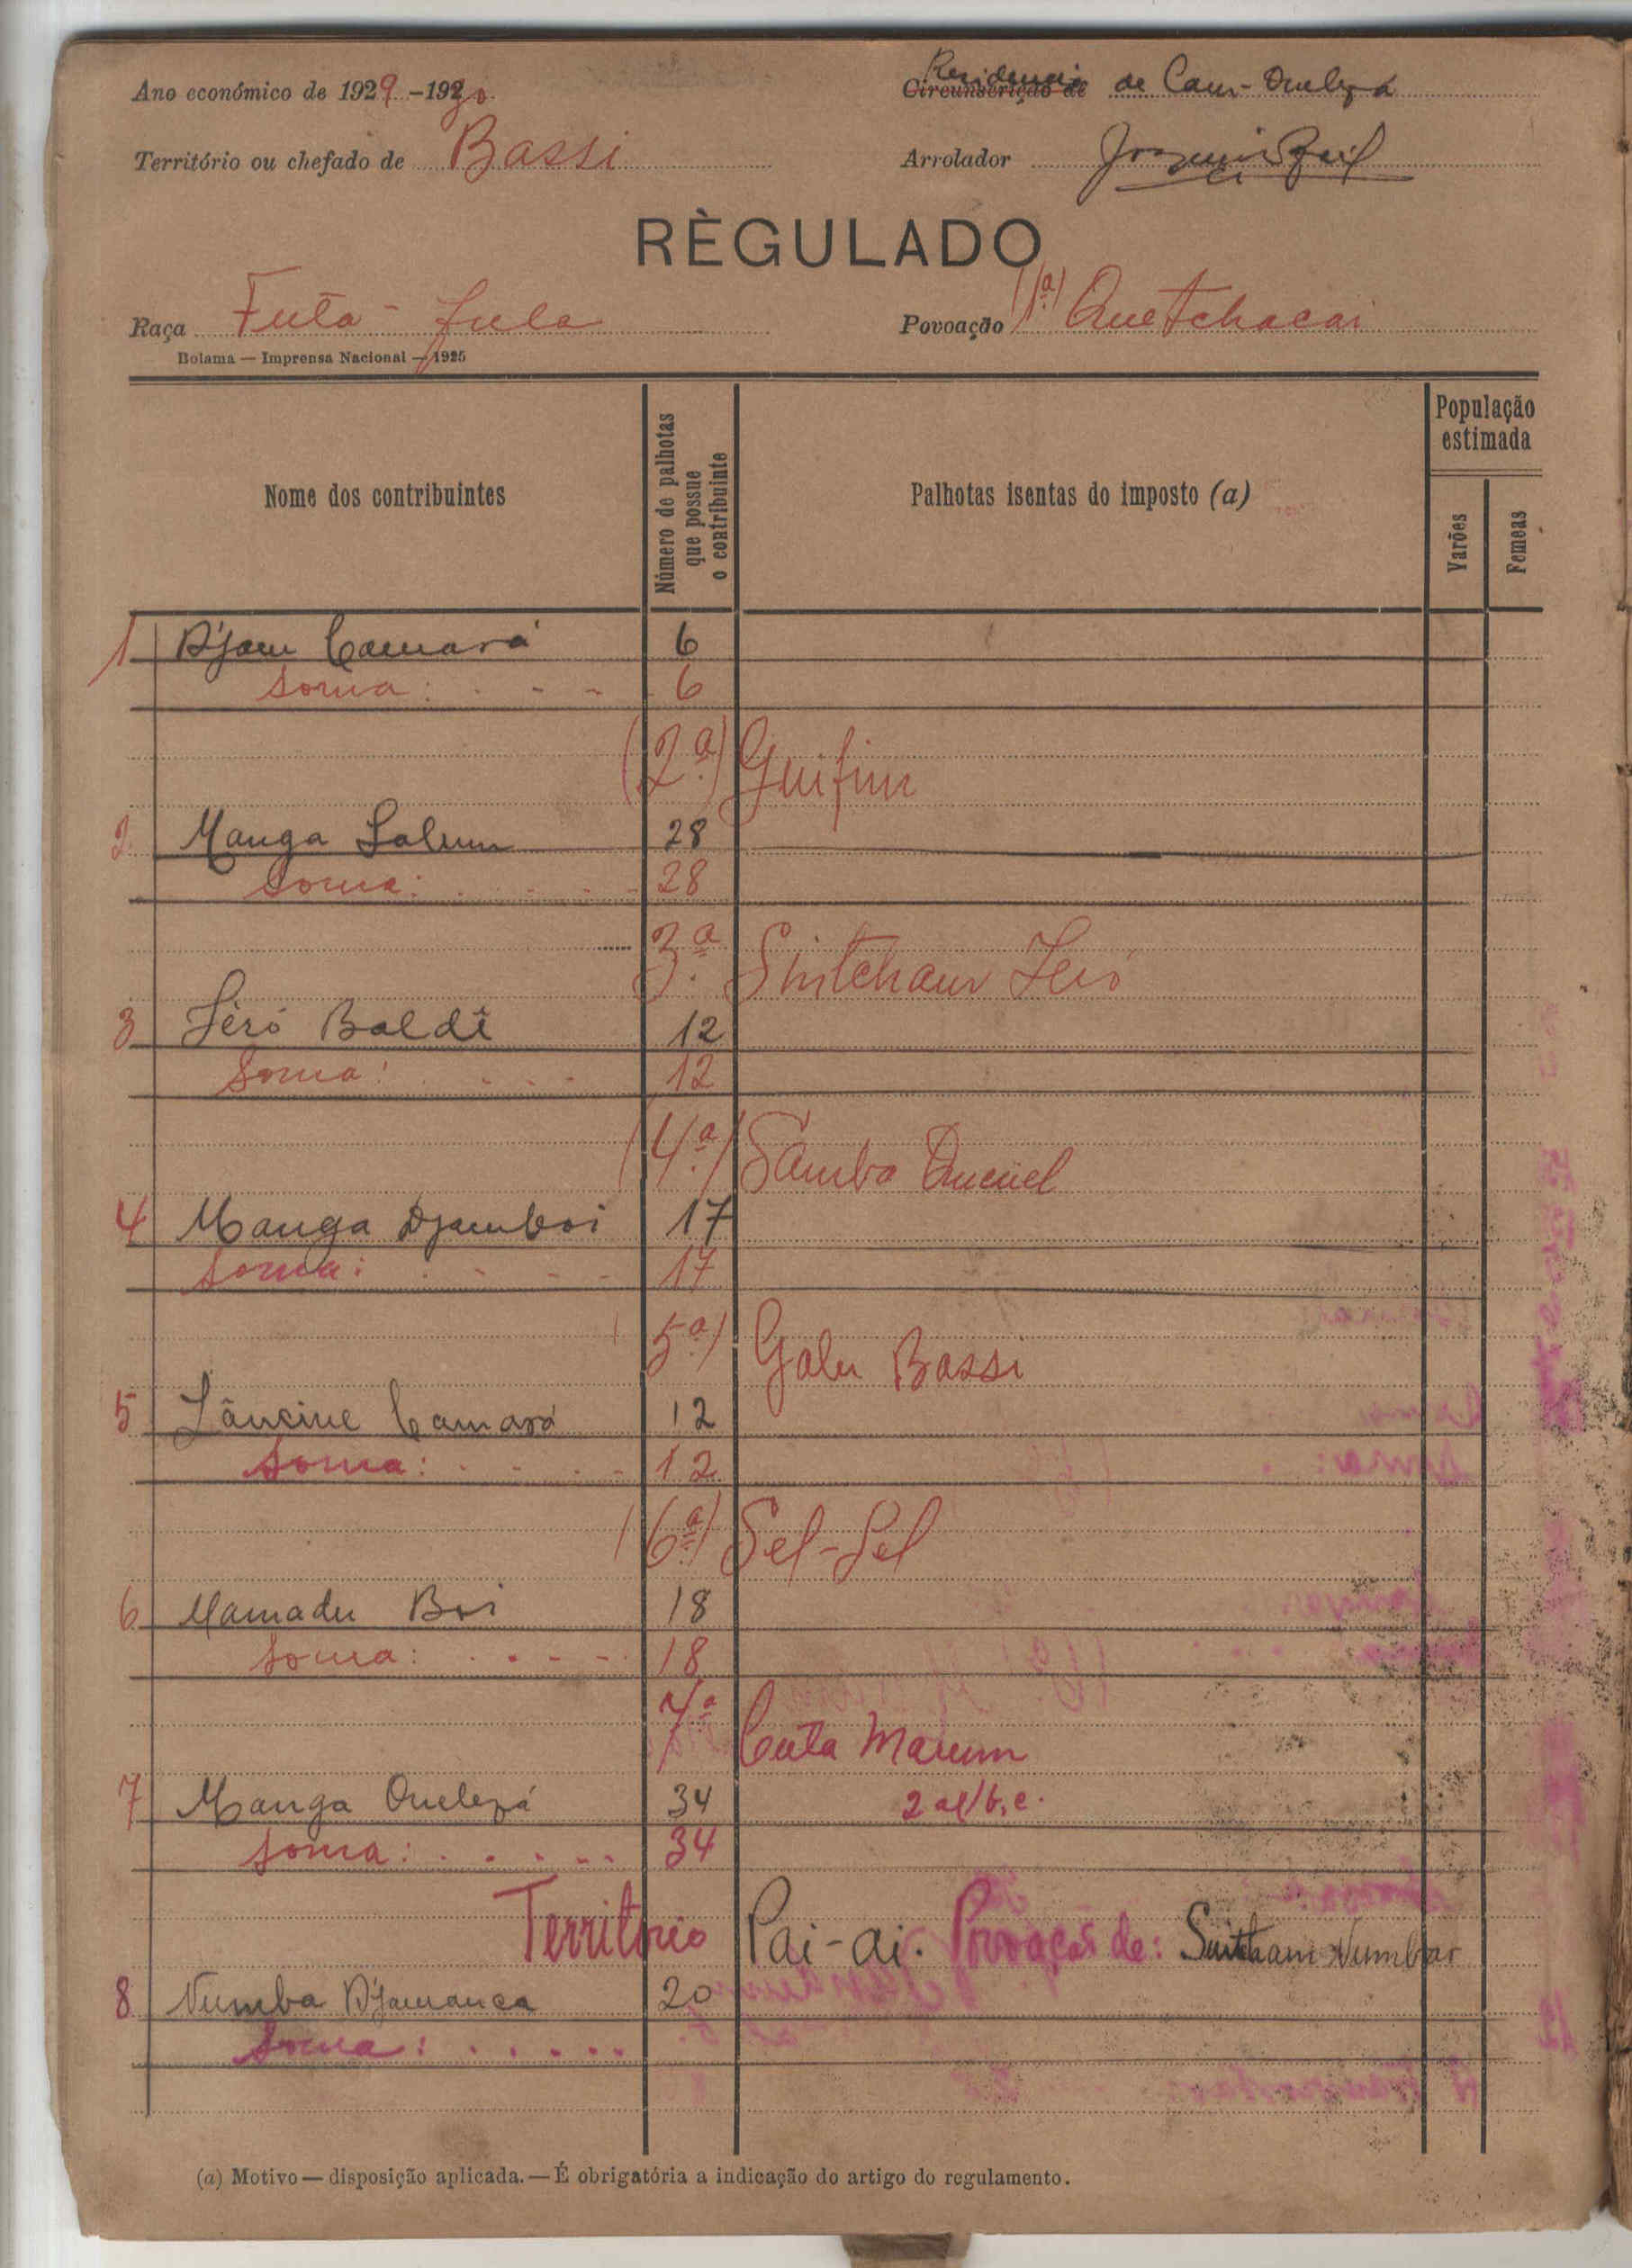 Ano económico de 1929-1930
Residencia de Cam-Quelefá
Circunscrição de
Território ou chefado de Bassi
Arrolador
RÈGULADO
Raça Futa-fula
Povoação (1ª) Quetchacai
Bolama — Imprensa Nacional — 1925
Nome dos contribuintes
Número de palhotas que possue o contribuinte
Palhotas isentas do imposto (a)
População estimada
Varões
Femeas
1 Djam Camará 6
Soma: 6
(2ª) Guifim
2 Manga Salum 28
Soma: 28
3ª Sintcham Séró
3 Séró Baldê 12
Soma: 12
(4ª) Samba
4 Manga Djamboi 17
Soma: 17
(5ª) Galu Bassi
5 Lâncine Camará 12
Soma: 12
(6ª) Sel-Sel
6 Mamadu Boi 18
Soma: 18
7ª Cuta Maum
7 Manga Quelefá 34
Soma: 34
Território Pai-ai. Povoação de: Sintcham Numbar
8 Numba Djamanca 20
Soma:
(a) Motivo — disposição aplicada. — É obrigatória a indicação do artigo do regulamento.